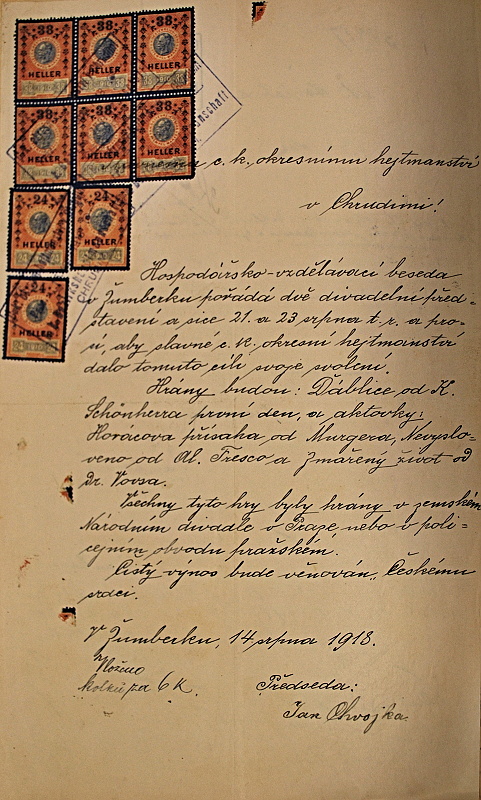 38 38 38
HELLER HELLER HELLER
38 38 38
HELLER HELLER HELLER
24 24
HELLER HELLER
24
HELLER
c. k. okresnímu hejtmanství
v Chrudimi!
Hospodářsko-vzdělávací beseda
v Žumberku pořádá dvě divadelní před-
stavení a sice 21. a 23 srpna t. r. a pro-
sí, aby slavné c. k. okresní hejtmanství
dalo tomuto cíli svoje svolení.
Hrány budou: Ďáblice od K.
Schönherra první den, a aktovky:
Horácova přísaha od Murgera, Nevyslo-
veno od Al. Fresco a Zmařený život od
dr. Vovsa.
Všechny tyto hry byly hrány v zemském
Národním divadle v Praze, nebo v poli-
cejním obvodu pražském.
Čistý výnos bude věnován „Českému
srdci.
V Žumberku, 14 srpna 1918.
Vloženo
kolků za 6 K.
Předseda:
Jan Chvojka.